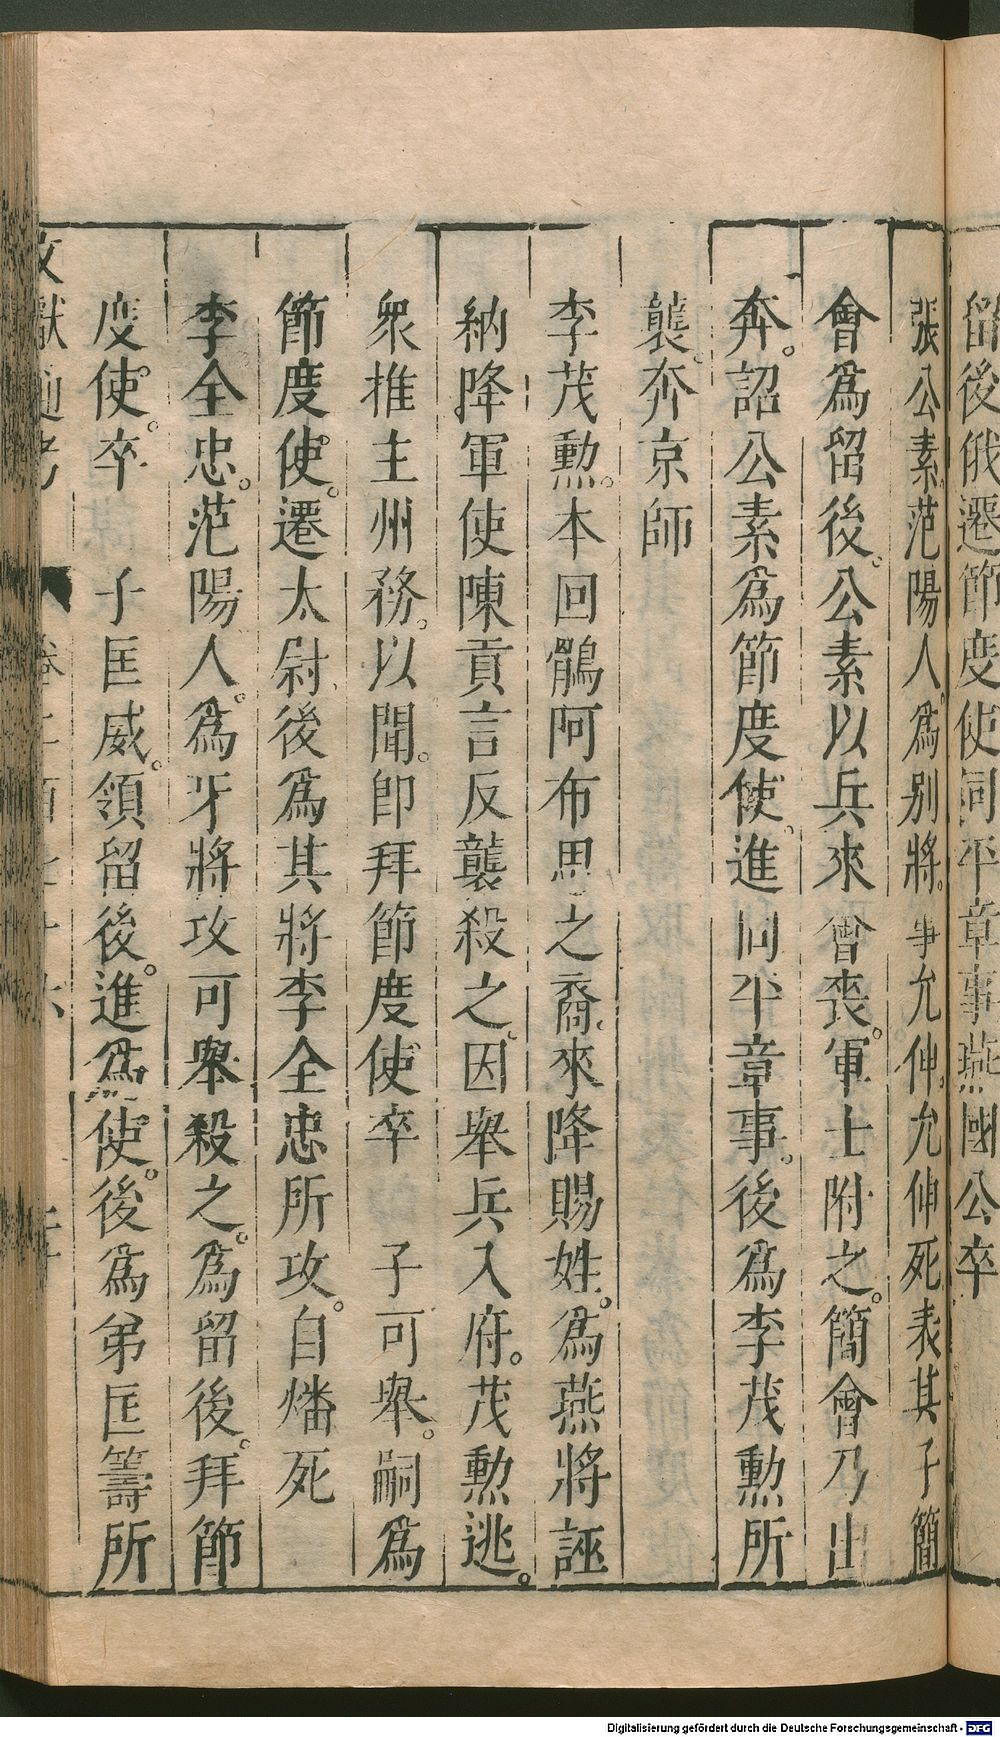 留後俄遷節度使同平章事燕國公卒
張公素范陽人爲别將事允伸允伸死表其子簡
會爲留後公素以兵來會喪軍士附之簡會乃出
奔詔公素爲節度使進同平章事後爲李茂勲所
襲奔京師
李茂勲本回鶻阿布思之裔來降賜姓爲燕將誣
納降軍使陳貢言反襲殺之因舉兵入府茂勲逃
衆推主州務以聞即拜節度使卒 子可舉嗣爲
節度使遷太尉後爲其將李全忠所攻自燔死
李全忠范陽人爲牙將攻可舉殺之爲留後拜節
度使卒 子匡威領留後進爲使後爲弟匡籌所
文獻通考 卷二百七十六
Digitalisierung gefördert durch die Deutsche Forschungsgemeinschaft - DFG